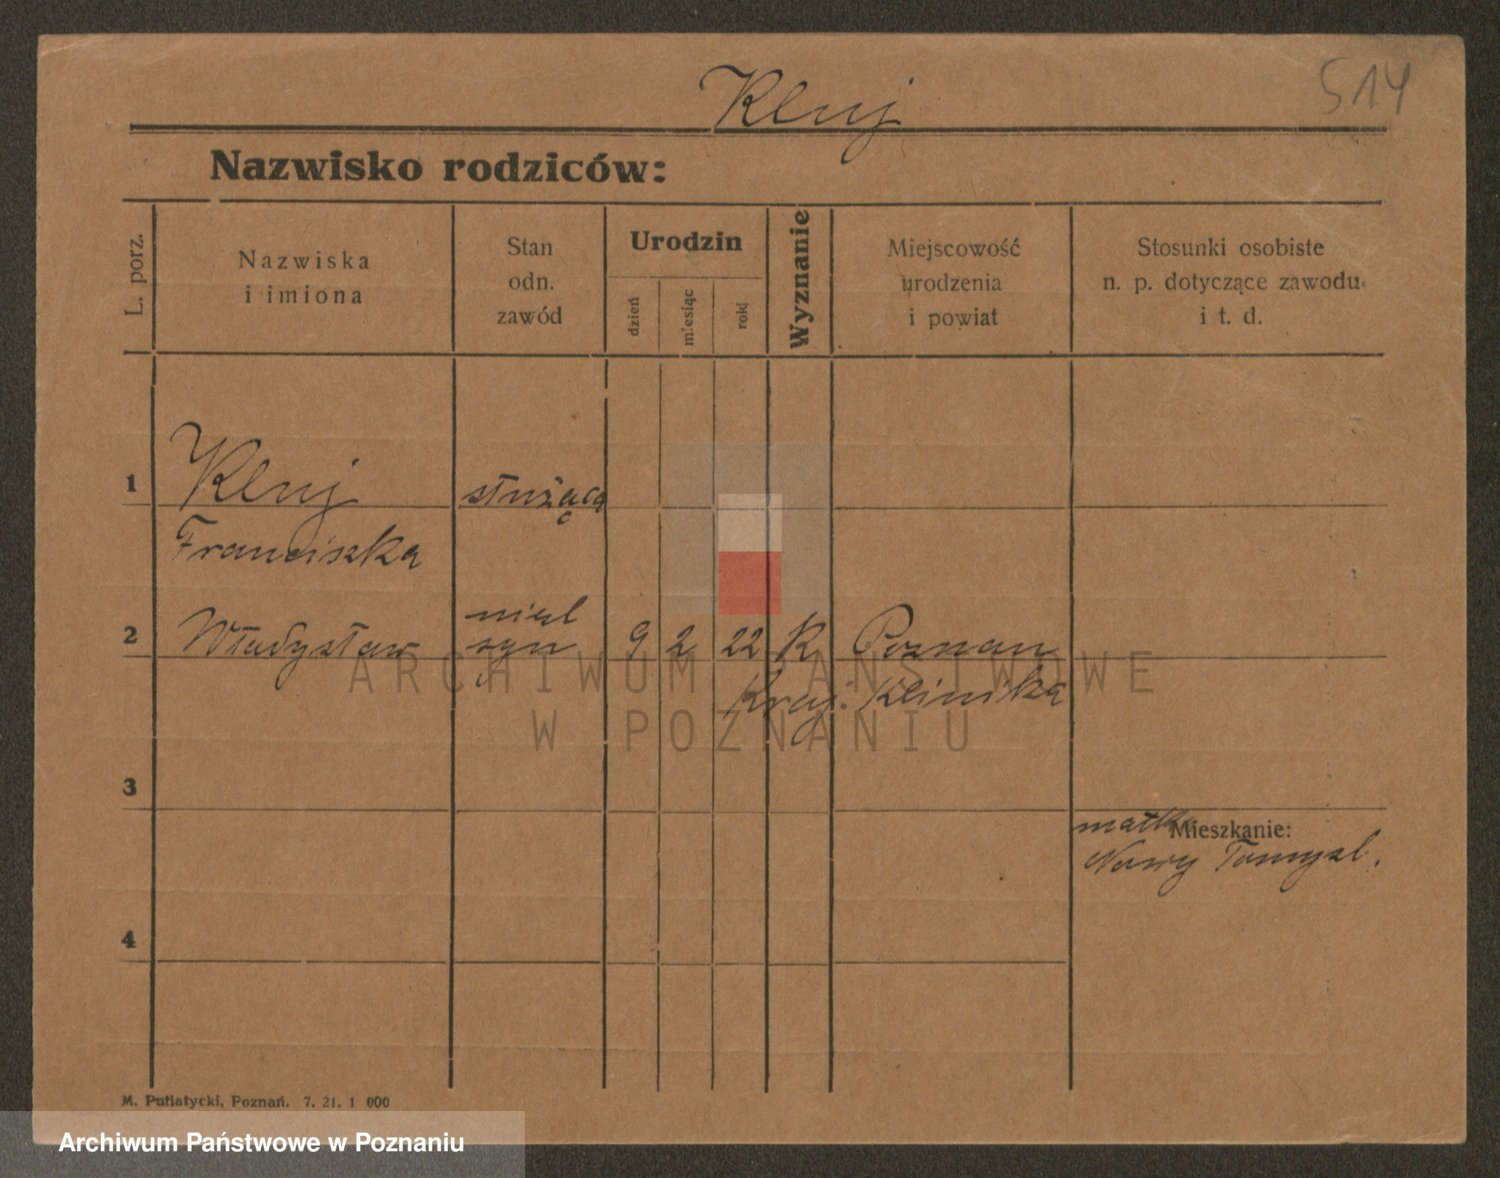 Kluj
514
Nazwisko rodziców:
L. porz.
Nazwiska
i imiona
Stan
odn.
zawód
Urodzin
dzień
miesiąc
rok
Wyznanie
Miejscowość
urodzenia
i powiat
Stosunki osobiste
n. p. dotyczące zawodu
i t. d.
1
Kluj
służąca
Franciszka
2
Władysław
nieśl
syn
9
2
22
K
Poznan
Kraj. Klinika
ARCHIWUM PAŃSTWOWE
W POZNANIU
3
matka
Mieszkanie:
Nowy Tomysl.
4
M. Putiatycki, Poznań. 7. 21. 1 000
Archiwum Państwowe w Poznaniu